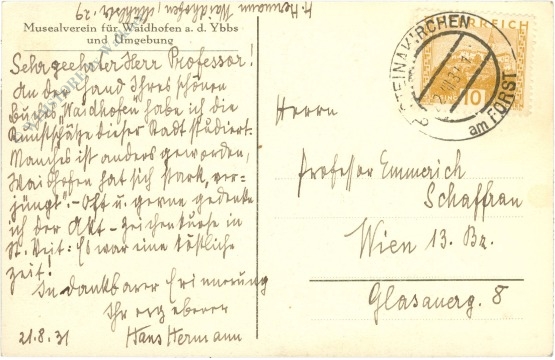 H. Hermann Waidhofen, 29
Musealverein für Waidhofen a. d. Ybbs
und Umgebung
Sehr geehrter Herr Professor!
An der Hand Ihres schönen
Buches "Waidhofen" habe ich die
Kunstschätze dieser Stadt studiert.
Manches ist anders geworden,
Waidhofen hat sich stark "ver-
jüngt". - Oft u. gerne gedenke
ich der Akt - Zeichenkurse in
St. Veit: Es war eine köstliche
Zeit!
In dankbarer Erinnerung
Ihr ergebener
21.8.31 Hans Hermann
STEINAKIRCHEN
am FORST
ÖSTERREICH
10
Herrn
Professor Emmerich
Schaffran
Wien 13. Bz.
Glasauerg. 8